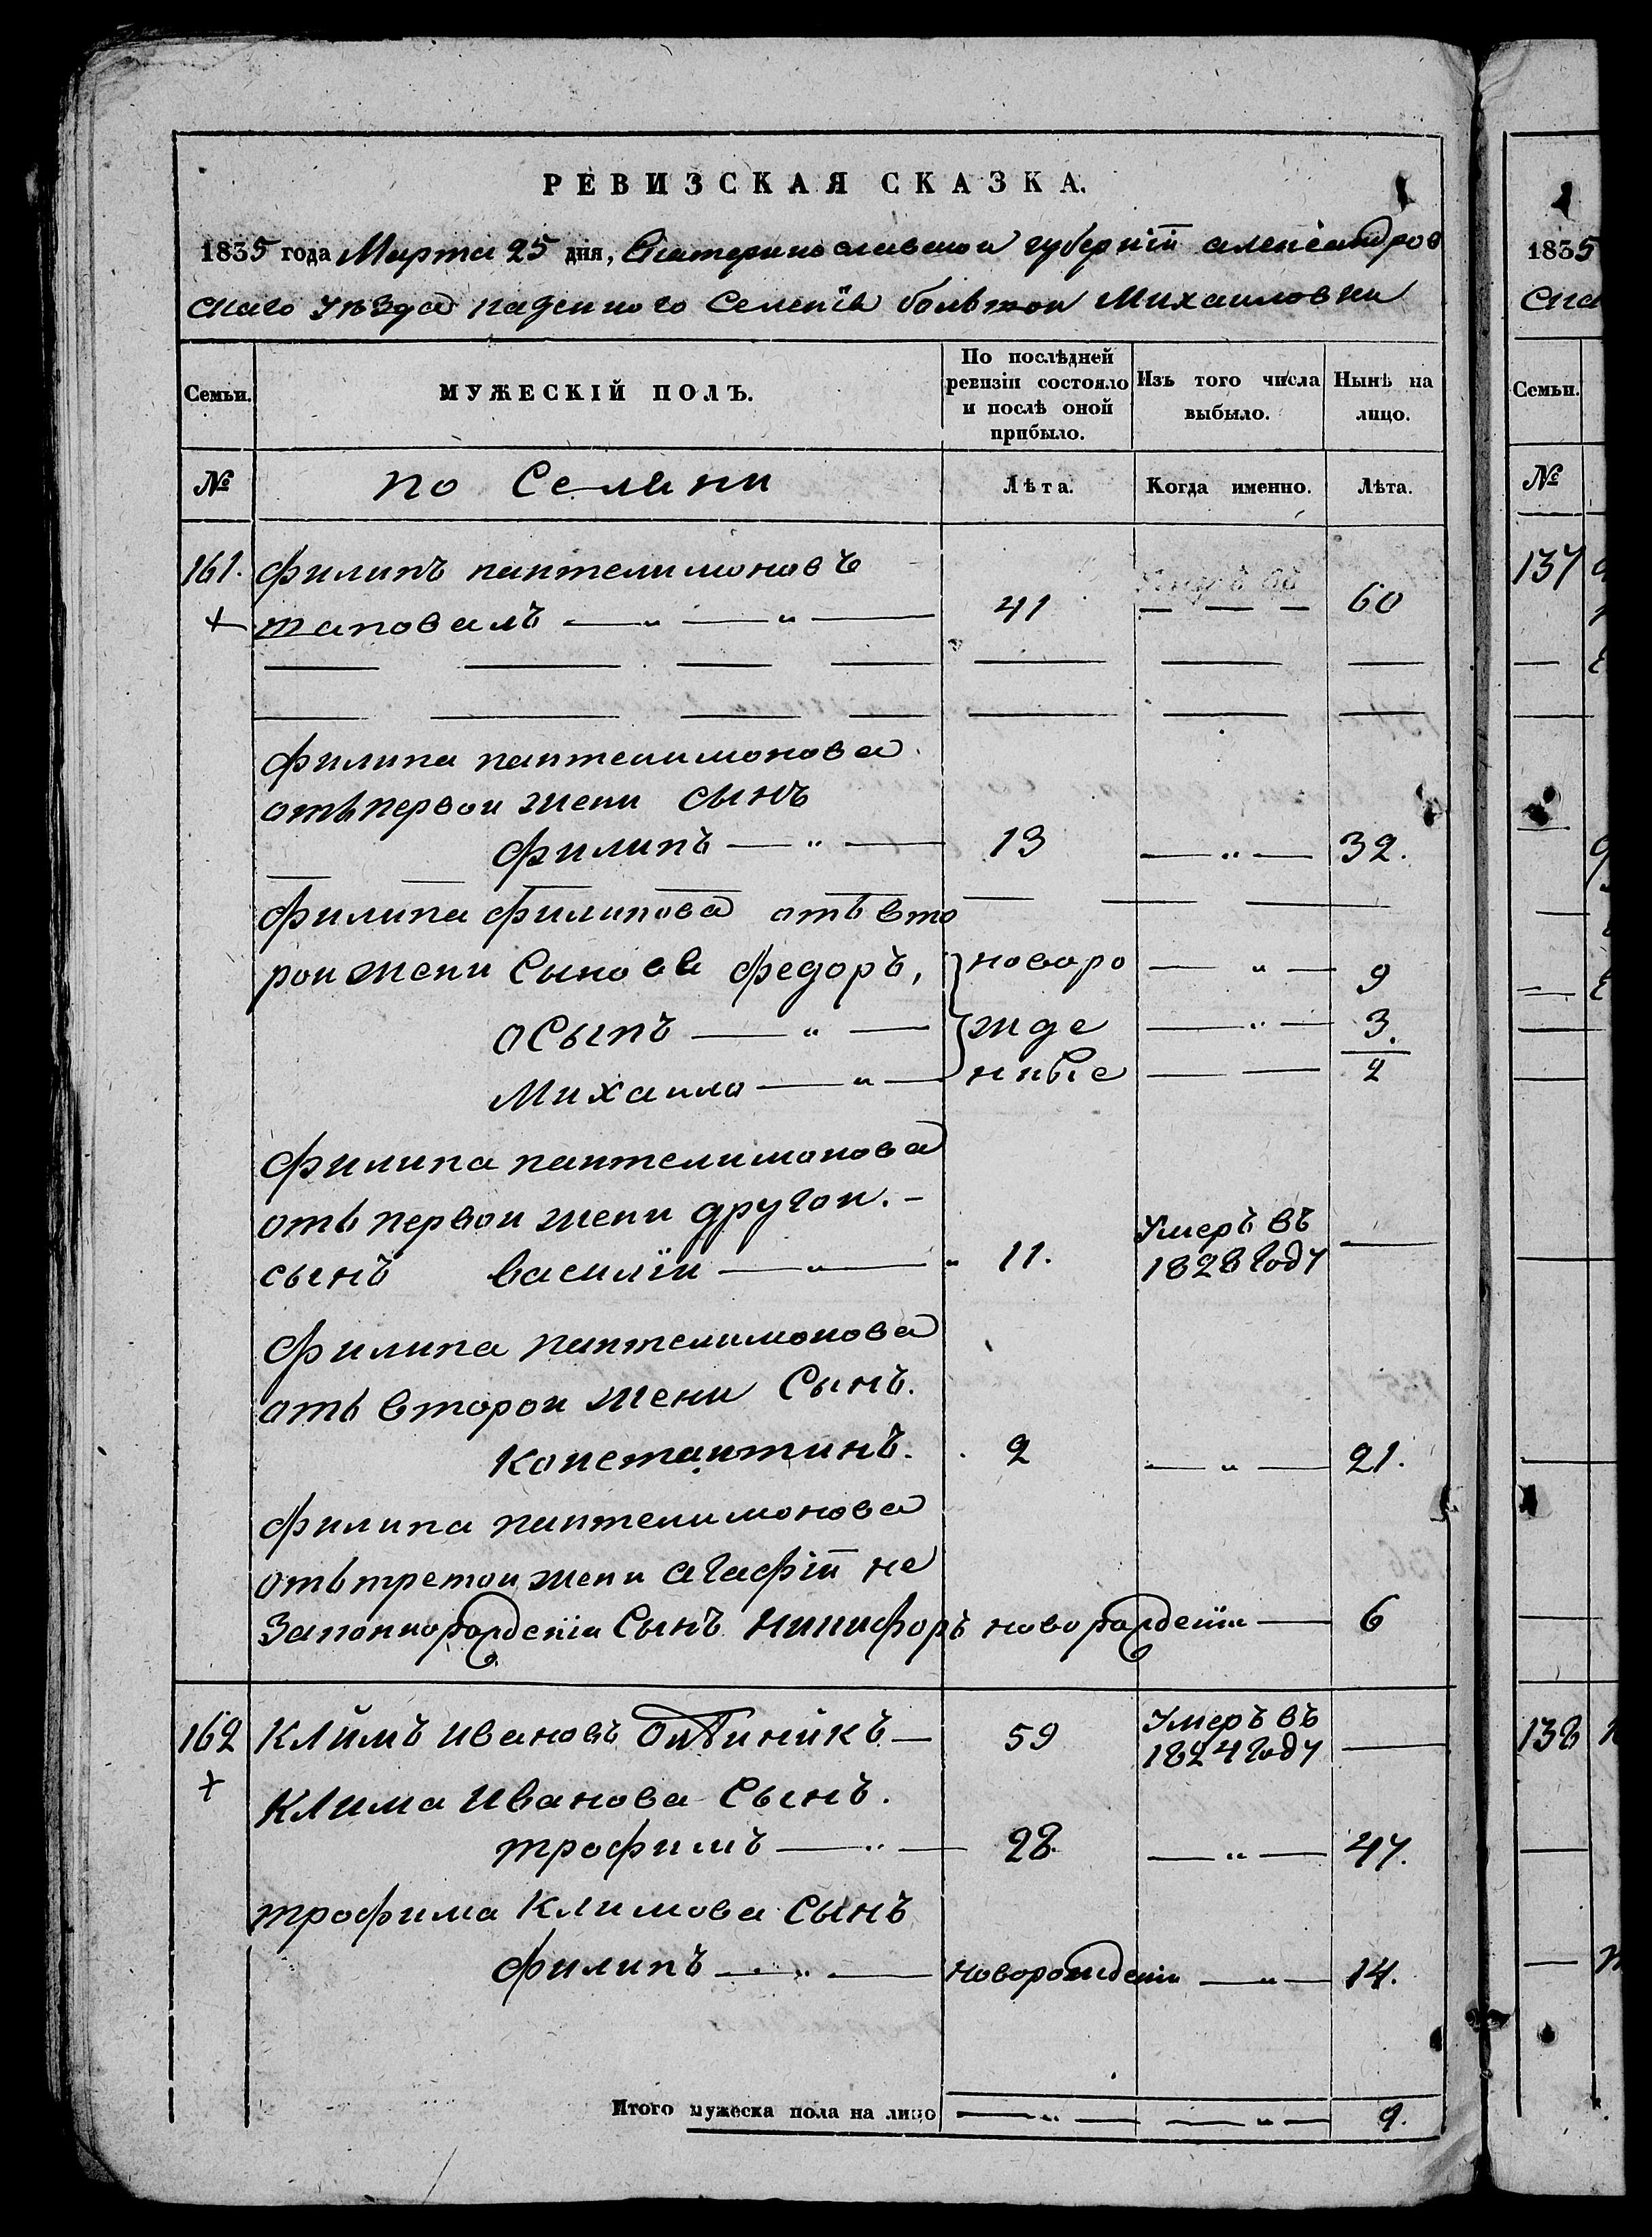 РЕВИЗСКАЯ СКАЗКА.
1835 года Марта 25 дня, Екатеринославской губерніи александров
скаго уѣзда казенного Селенія большои Михаиловки
Семьи. МУЖЕСКІЙ ПОЛЪ. По послѣдней ревизіи состояло и послѣ оной прибыло. Изъ того числа выбыло. Нынѣ на лицо.
№ по Селяни Лѣта. Когда именно. Лѣта.
161. филипъ пантелимоновъ
+ шаповалъ — „ — „ — 41 — — — 60
филипа пантелимонова
отъ первои жени сынъ
филипъ — „ — 13 — „ — 32.
филипа филипова отъ вто
рои жени Сыновя федоръ, новоро — „ — 9
осыпъ — „ — жде — „ — 3.
Михаило — „ — нные — — 2
филипа пантелимонова
отъ первои жени другои. -
сынъ василіи — „ — „ 11. Умеръ въ 1828 году —
филипа пантелимонова
отъ второи жени Сынъ.
константинъ. 2 — „ — 21.
филипа пантелимонова
отъ третои жени агафіи не
законнорожденіи Сынъ никифоръ новорожденіи — 6
162 Климъ ивановъ Олѣиникъ — 59 Умеръ въ 1824 году —
+ Клима иванова Сынъ.
трофимъ — „ — 28. — „ — 47.
трофима Климова сынъ
филипъ — „ — новорожденіи — „ — 14.
Итого мужеска пола на лицо — „ — — „ — 9.
1835
ска
Семьи.
№
137
138